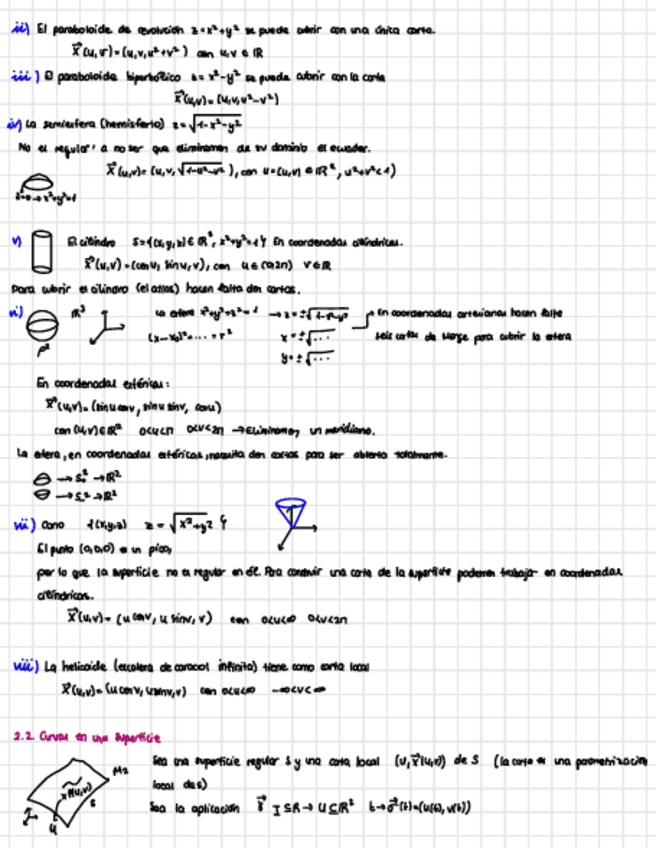 ii) El paraboloide de revolución z=x²+y² se puede cubrir con una única carta.
X⃗(u,v)=(u,v,u²+v²) con u,v ∈ ℝ
iii) El paraboloide hiperbólico z=x²-y² se puede cubrir con la carta
X⃗(u,v)=(u,v,u²-v²)
iv) La semiesfera (hemisferio) z=√(1-x²-y²)
No es regular, a no ser que eliminemos de su dominio el ecuador.
X⃗(u,v)=(u,v,√(1-u²-v²)), con U={(u,v)∈ℝ², u²+v²<1}
z=0→x²+y²=1
v) El cilindro S={(x,y,z)∈ℝ³, x²+y²=1} En coordenadas cilíndricas.
X⃗(u,v)=(cosu, sinu,v), con u∈(0,2π) v∈ℝ
Para cubrir el cilindro (el atlas) hacen falta dos cartas.
vi) ℝ³ La esfera x²+y²+z²=1 →z=±√(1-x²-y²) En coordenadas cartesianas hacen falta
(x-x₀)²+...=r² x=±√... seis cartas de Monge para cubrir la esfera
y=±√...
En coordenadas esféricas:
X⃗(u,v)=(sinu cosv, sinu sinv, cosu)
con (u,v)∈ℝ² 0<u<π 0<v<2π →Eliminamos un meridiano.
La esfera, en coordenadas esféricas, necesita dos cartas para ser abierta totalmente.
→ S₊² →ℝ²
→ S₋² →ℝ²
vii) Cono {(x,y,z) z=√(x²+y²)}
El punto (0,0,0) es un pico,
por lo que la superficie no es regular en él. Para construir una carta de la superficie podemos trabajar en coordenadas
cilíndricas.
X⃗(u,v)=(u cosv, u sinv, v) con 0<u<∞ 0<v<2π
viii) La helicoide (escalera de caracol infinita) tiene como carta local
X⃗(u,v)=(u cosv, u sinv, v) con 0<u<∞ -∞<v<∞
2.2. Curvas en una superficie
Sea una superficie regular S y una carta local (U,X⃗(u,v)) de S (la carta es una parametrización
local de S)
Sea la aplicación I⊆ℝ→U⊆ℝ² t→(u(t),v(t))